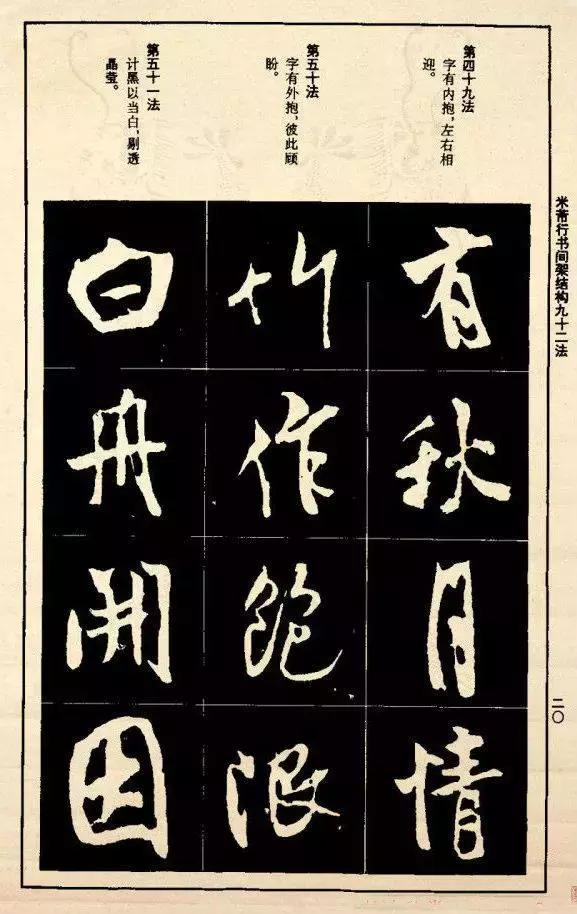 米芾行书间架结构九十二法
二〇
第四十九法
字有内抱，左右相
迎。
第五十法
字有外抱，彼此顾
盼。
第五十一法
计黑以当白，剔透
晶莹。
有秋月情
竹作飽限
白舟開因